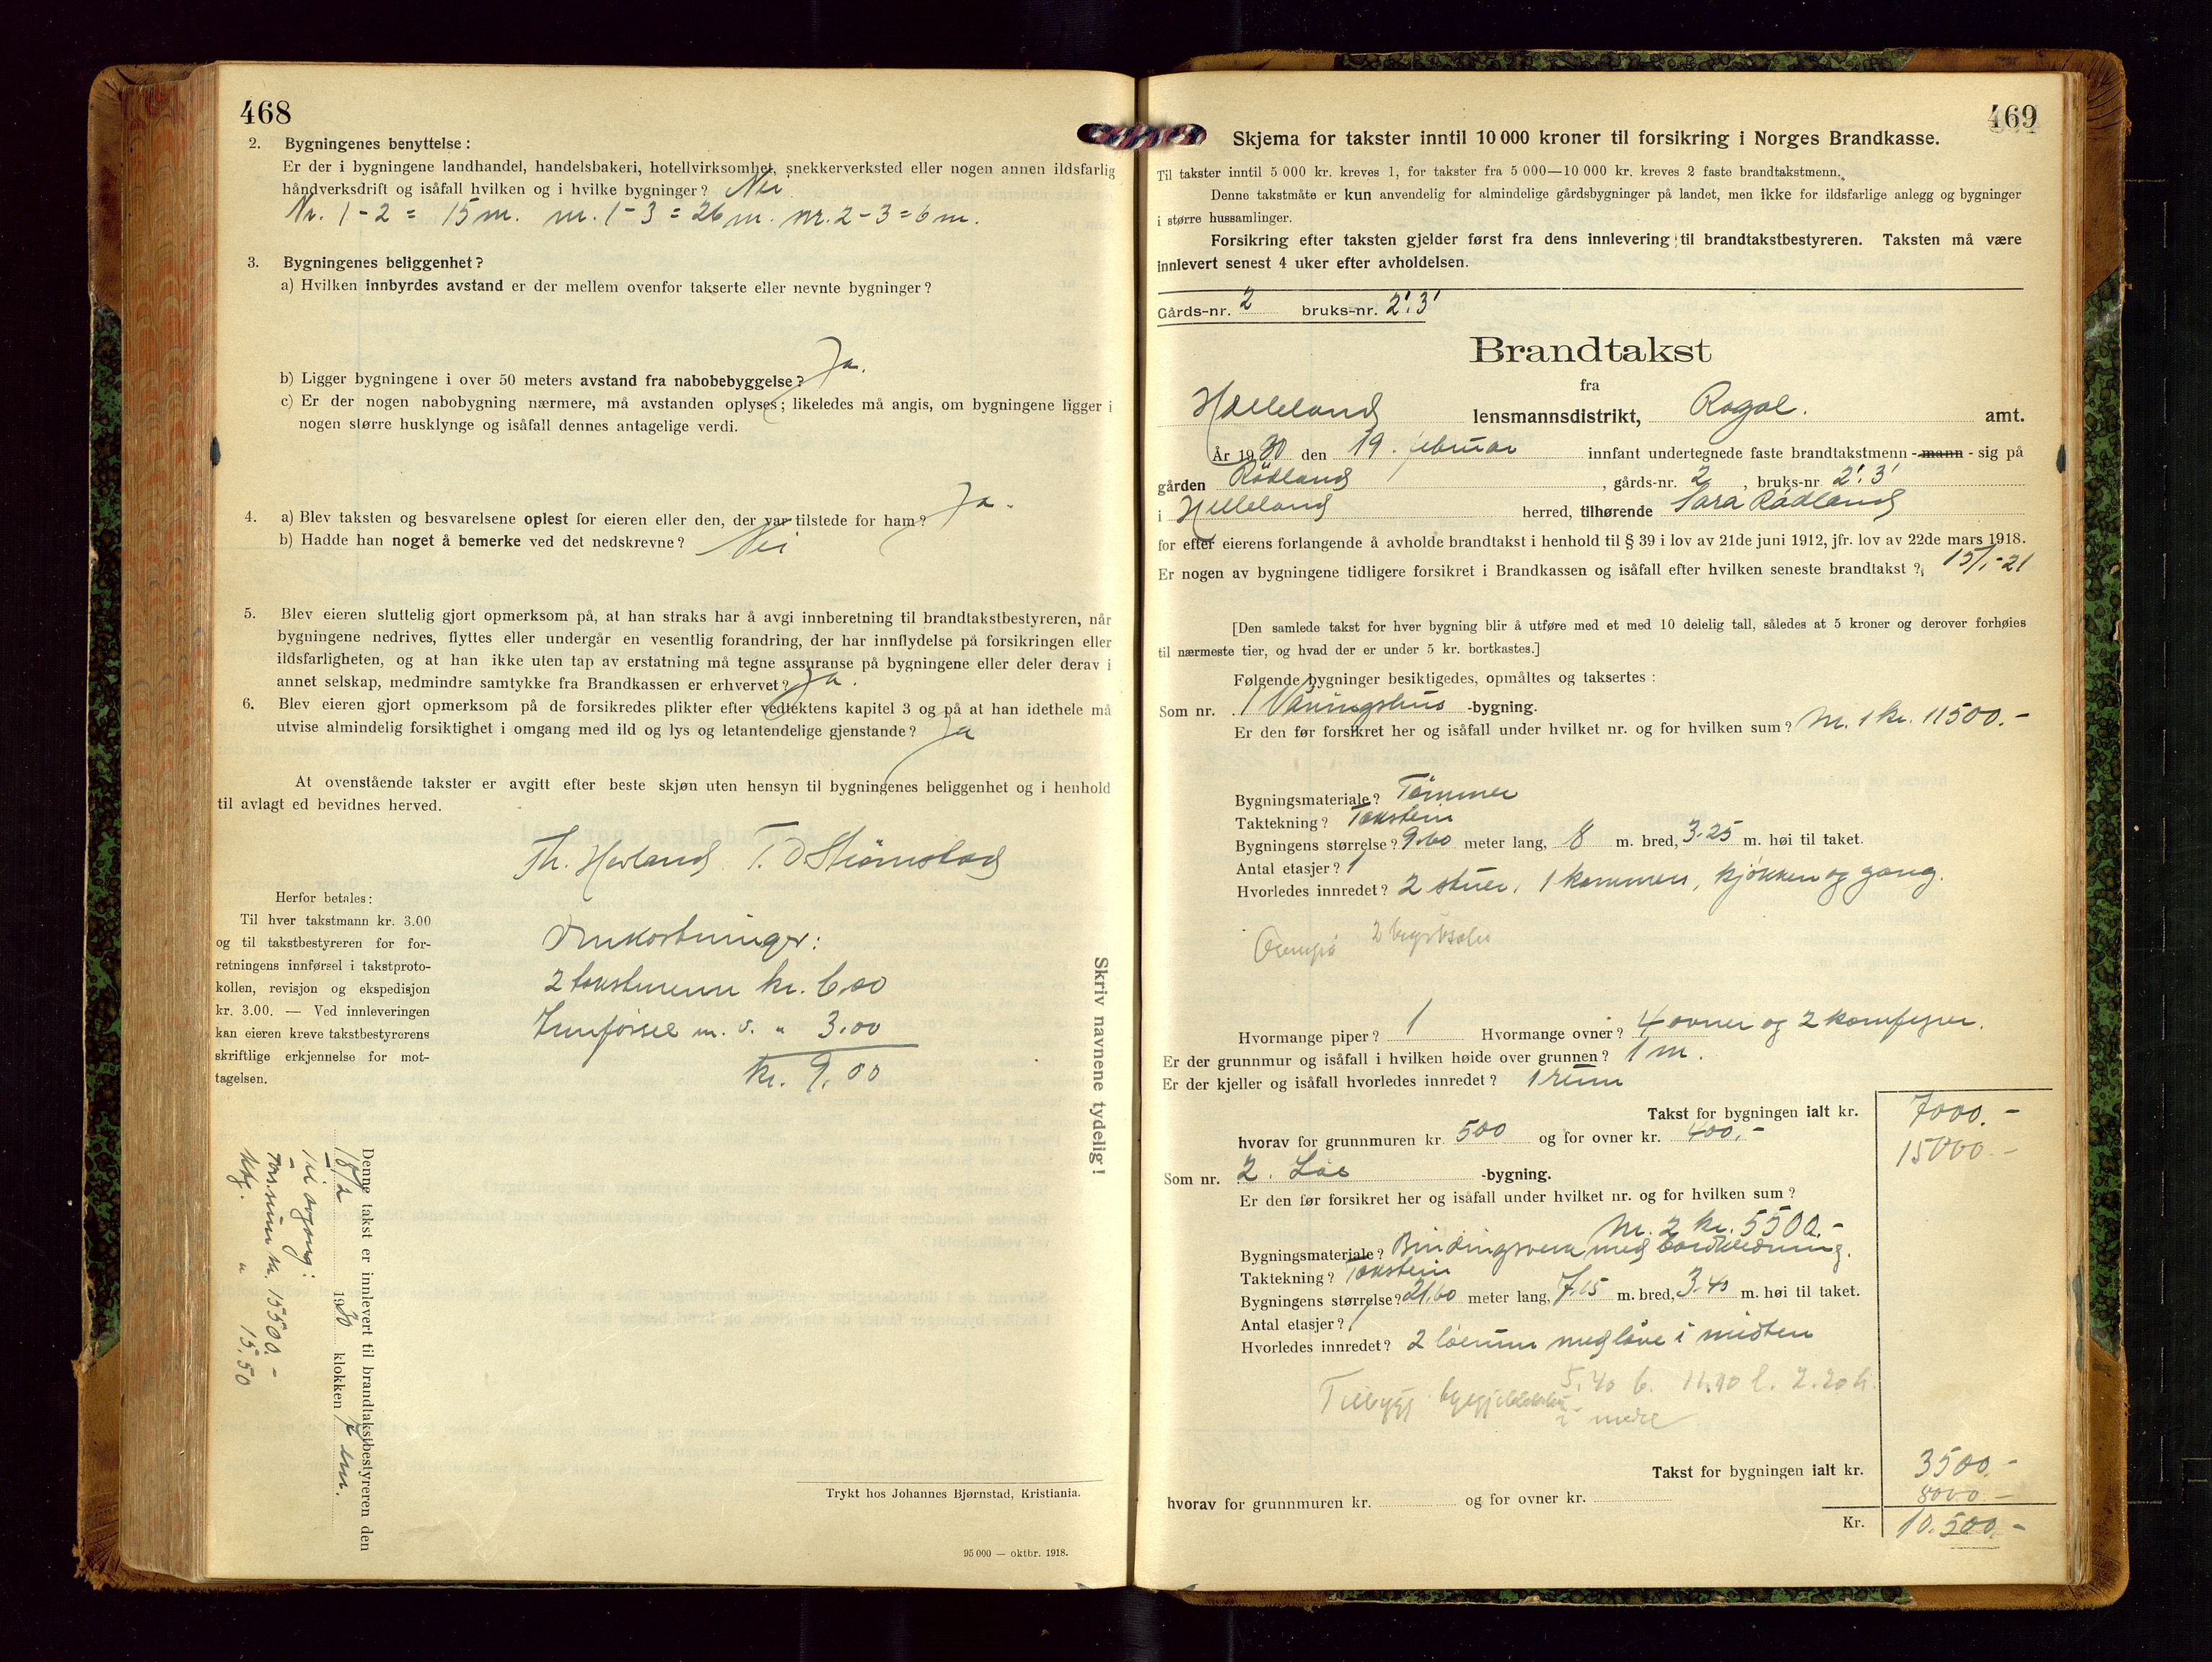 468
2. Bygningenes benyttelse:
Er der i bygningene landhandel, handelsbakeri, hotellvirksomhet, snekkerverksted eller nogen annen ildsfarlig
håndverksdrift og isåfall hvilken og i hvilke bygninger? Nei
Nr. 1-2 = 15 m. nr. 1-3 = 26 m. nr. 2-3 = 6 m.
3. Bygningenes beliggenhet?
a) Hvilken innbyrdes avstand er der mellem ovenfor takserte eller nevnte bygninger?
b) Ligger bygningene i over 50 meters avstand fra nabobebyggelse? Ja.
c) Er der nogen nabobygning nærmere, må avstanden oplyses; likeledes må angis, om bygningene ligger i
nogen større husklynge og isåfall dennes antagelige verdi.
4. a) Blev taksten og besvarelsene oplest for eieren eller den, der var tilstede for ham? Ja.
b) Hadde han noget å bemerke ved det nedskrevne? Nei
5. Blev eieren sluttelig gjort opmerksom på, at han straks har å avgi innberetning til brandtakstbestyreren, når
bygningene nedrives, flyttes eller undergår en vesentlig forandring, der har innflydelse på forsikringen eller
ildsfarligheten, og at han ikke uten tap av erstatning må tegne assuranse på bygningene eller deler derav i
annet selskap, medmindre samtykke fra Brandkassen er erhvervet? Ja.
6. Blev eieren gjort opmerksom på de forsikredes plikter efter vedtektens kapitel 3 og på at han idethele må
utvise almindelig forsiktighet i omgang med ild og lys og letantendelige gjenstande? Ja
At ovenstående takster er avgitt efter beste skjøn uten hensyn til bygningenes beliggenhet og i henhold
til avlagt ed bevidnes herved.
Th. Havland T. O Strømstad
Herfor betales:
Til hver takstmann kr. 3.00
og til takstbestyreren for for-
retningens innførsel i takstproto-
kollen, revisjon og ekspedisjon
kr. 3.00. — Ved innleveringen
kan eieren kreve takstbestyrerens
skriftlige erkjennelse for mot-
tagelsen.
Omkostninger:
2 takstmenn kr. 6.00
Innførsel m. v. " 3.00
kr. 9.00
Skriv navnene tydelig!
Denne takst er innlevert til brandtakstbestyreren den
18/2 1930 klokken 7 em.
Til avgang:
Fors.sum kr. 15500.-
" 15.50
Trykt hos Johannes Bjørnstad, Kristiania.
95 000 — oktbr. 1918.
469
Skjema for takster inntil 10 000 kroner til forsikring i Norges Brandkasse.
Til takster inntil 5 000 kr. kreves 1, for takster fra 5 000—10 000 kr. kreves 2 faste brandtakstmenn.
Denne takstmåte er kun anvendelig for almindelige gårdsbygninger på landet, men ikke for ildsfarlige anlegg og bygninger
i større hussamlinger.
Forsikring efter taksten gjelder først fra dens innlevering til brandtakstbestyreren. Taksten må være
innlevert senest 4 uker efter avholdelsen.
Gårds-nr. 2 bruks-nr. 2'. 3'
Brandtakst
fra
Helleland lensmannsdistrikt, Rogal. amt.
År 1930 den 19. februar innfant undertegnede faste brandtakstmenn - mann - sig på
gården Rødland, gårds-nr. 2, bruks-nr. 2'. 3'
i Helleland herred, tilhørende Sara Rødland
for efter eierens forlangende å avholde brandtakst i henhold til § 39 i lov av 21de juni 1912, jfr. lov av 22de mars 1918.
Er nogen av bygningene tidligere forsikret i Brandkassen og isåfall efter hvilken seneste brandtakst? 15/1-21
[Den samlede takst for hver bygning blir å utføre med et med 10 delelig tall, således at 5 kroner og derover forhøies
til nærmeste tier, og hvad der er under 5 kr. bortkastes.]
Følgende bygninger besiktigedes, opmåltes og taksertes:
Som nr. 1 Våningshus -bygning.
Er den før forsikret her og isåfall under hvilket nr. og for hvilken sum? Nr. 1 kr. 11500.-
Bygningsmateriale? Tømmer
Taktekning? Takstein
Bygningens størrelse? 9.60 meter lang, 8 m. bred, 3.25 m. høi til taket.
Antal etasjer? 1
Hvorledes innredet? 2 stuer, 1 kammers, kjøkken og gang.
Hvormange piper? 1 Hvormange ovner? 4 ovner og 2 komfyrer.
Er der grunnmur og isåfall i hvilken høide over grunnen? 1 m.
Er der kjeller og isåfall hvorledes innredet? 1 rum
Takst for bygningen ialt kr. 7000.-
hvorav for grunnmuren kr. 500 og for ovner kr. 400.- 15000.-
Som nr. 2. Løe -bygning.
Er den før forsikret her og isåfall under hvilket nr. og for hvilken sum?
Nr. 2 kr. 5500.-
Bygningsmateriale? Bindingsverk med bordkledning.
Taktekning? Takstein
Bygningens størrelse? 21.60 meter lang, 7.15 m. bred, 3.40 m. høi til taket.
Antal etasjer? 1
Hvorledes innredet? 2 løerum med låve i midten
Tilbygg 5.40 b. 11.90 l. 2.20 h.
Takst for bygningen ialt kr. 3500.-
8000.-
hvorav for grunnmuren kr. og for ovner kr.
Kr. 10.500.-